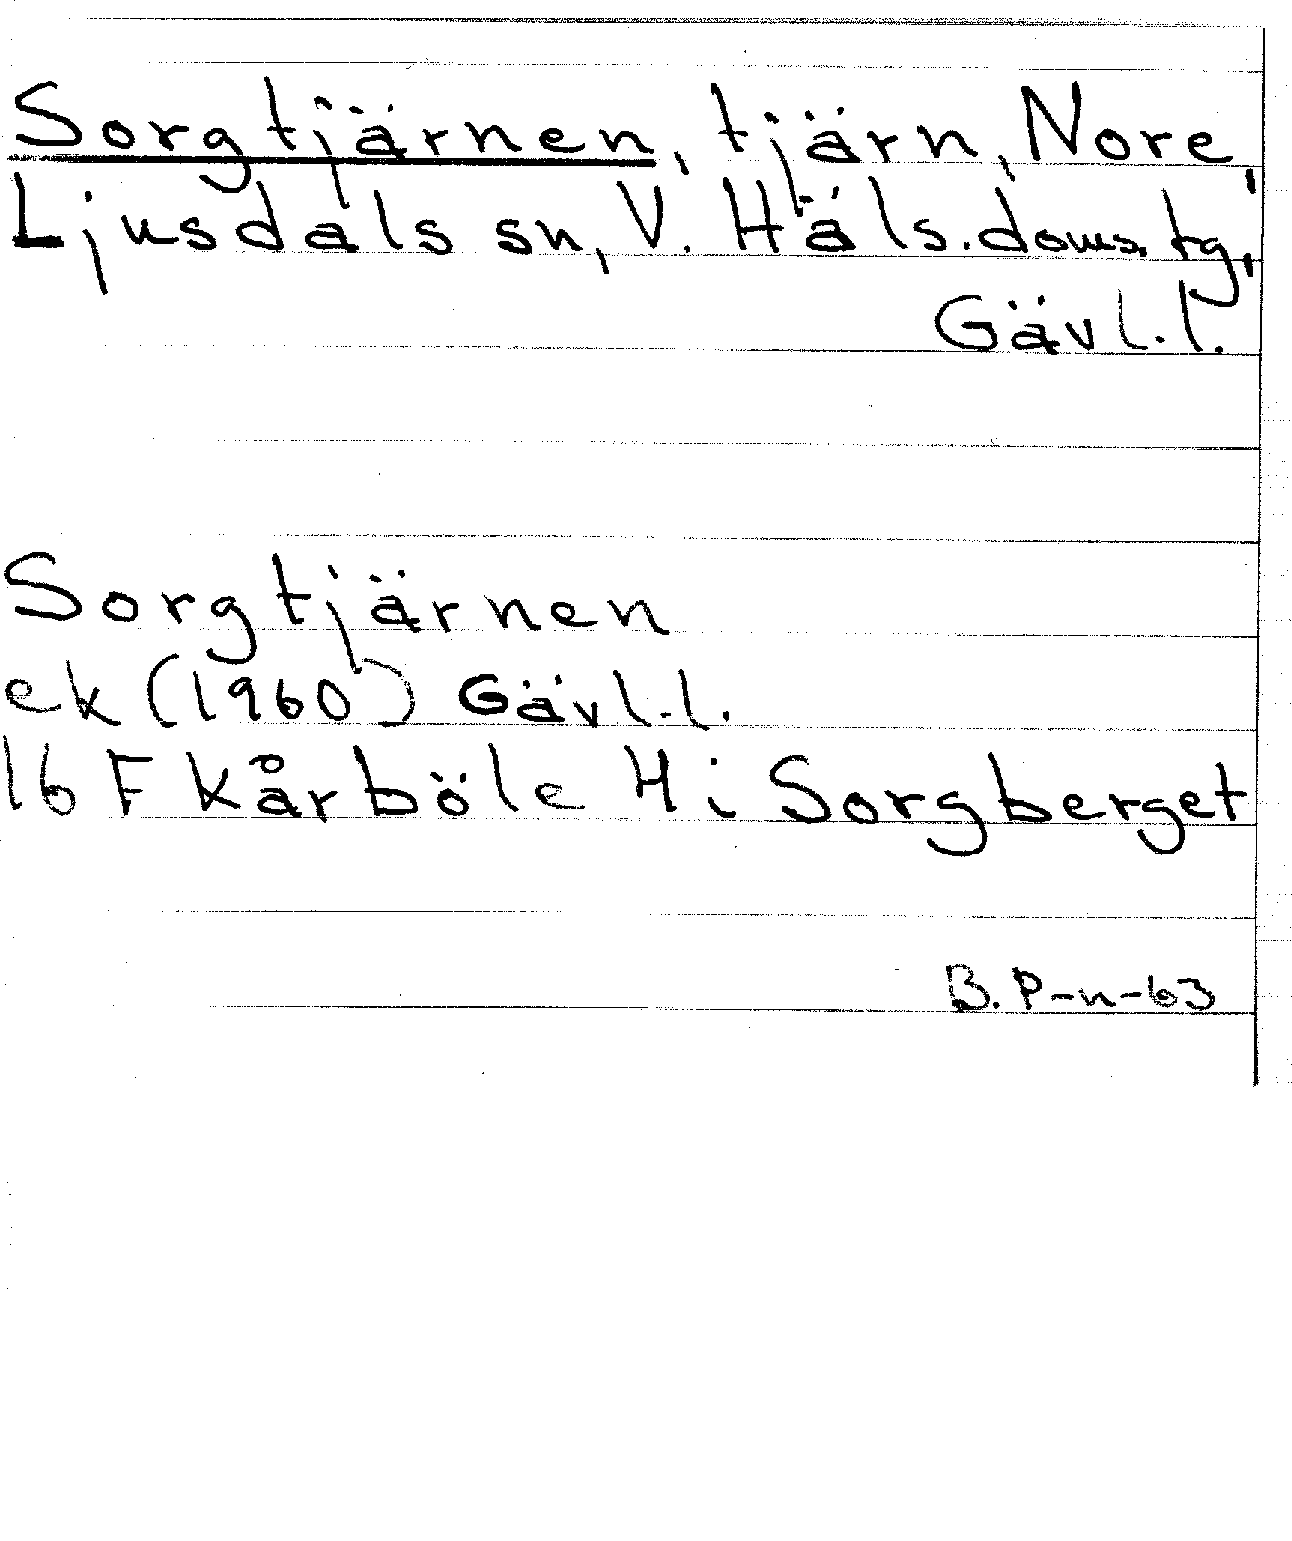 Sorgtjärnen, tjärn, Nore,
Ljusdals sn, V. Häls. doms. tg,
Gävl. l.
Sorgtjärnen
ek (1960) Gävl. l.
16 F Kårböle 4 i Sorgberget
B. P-n-63